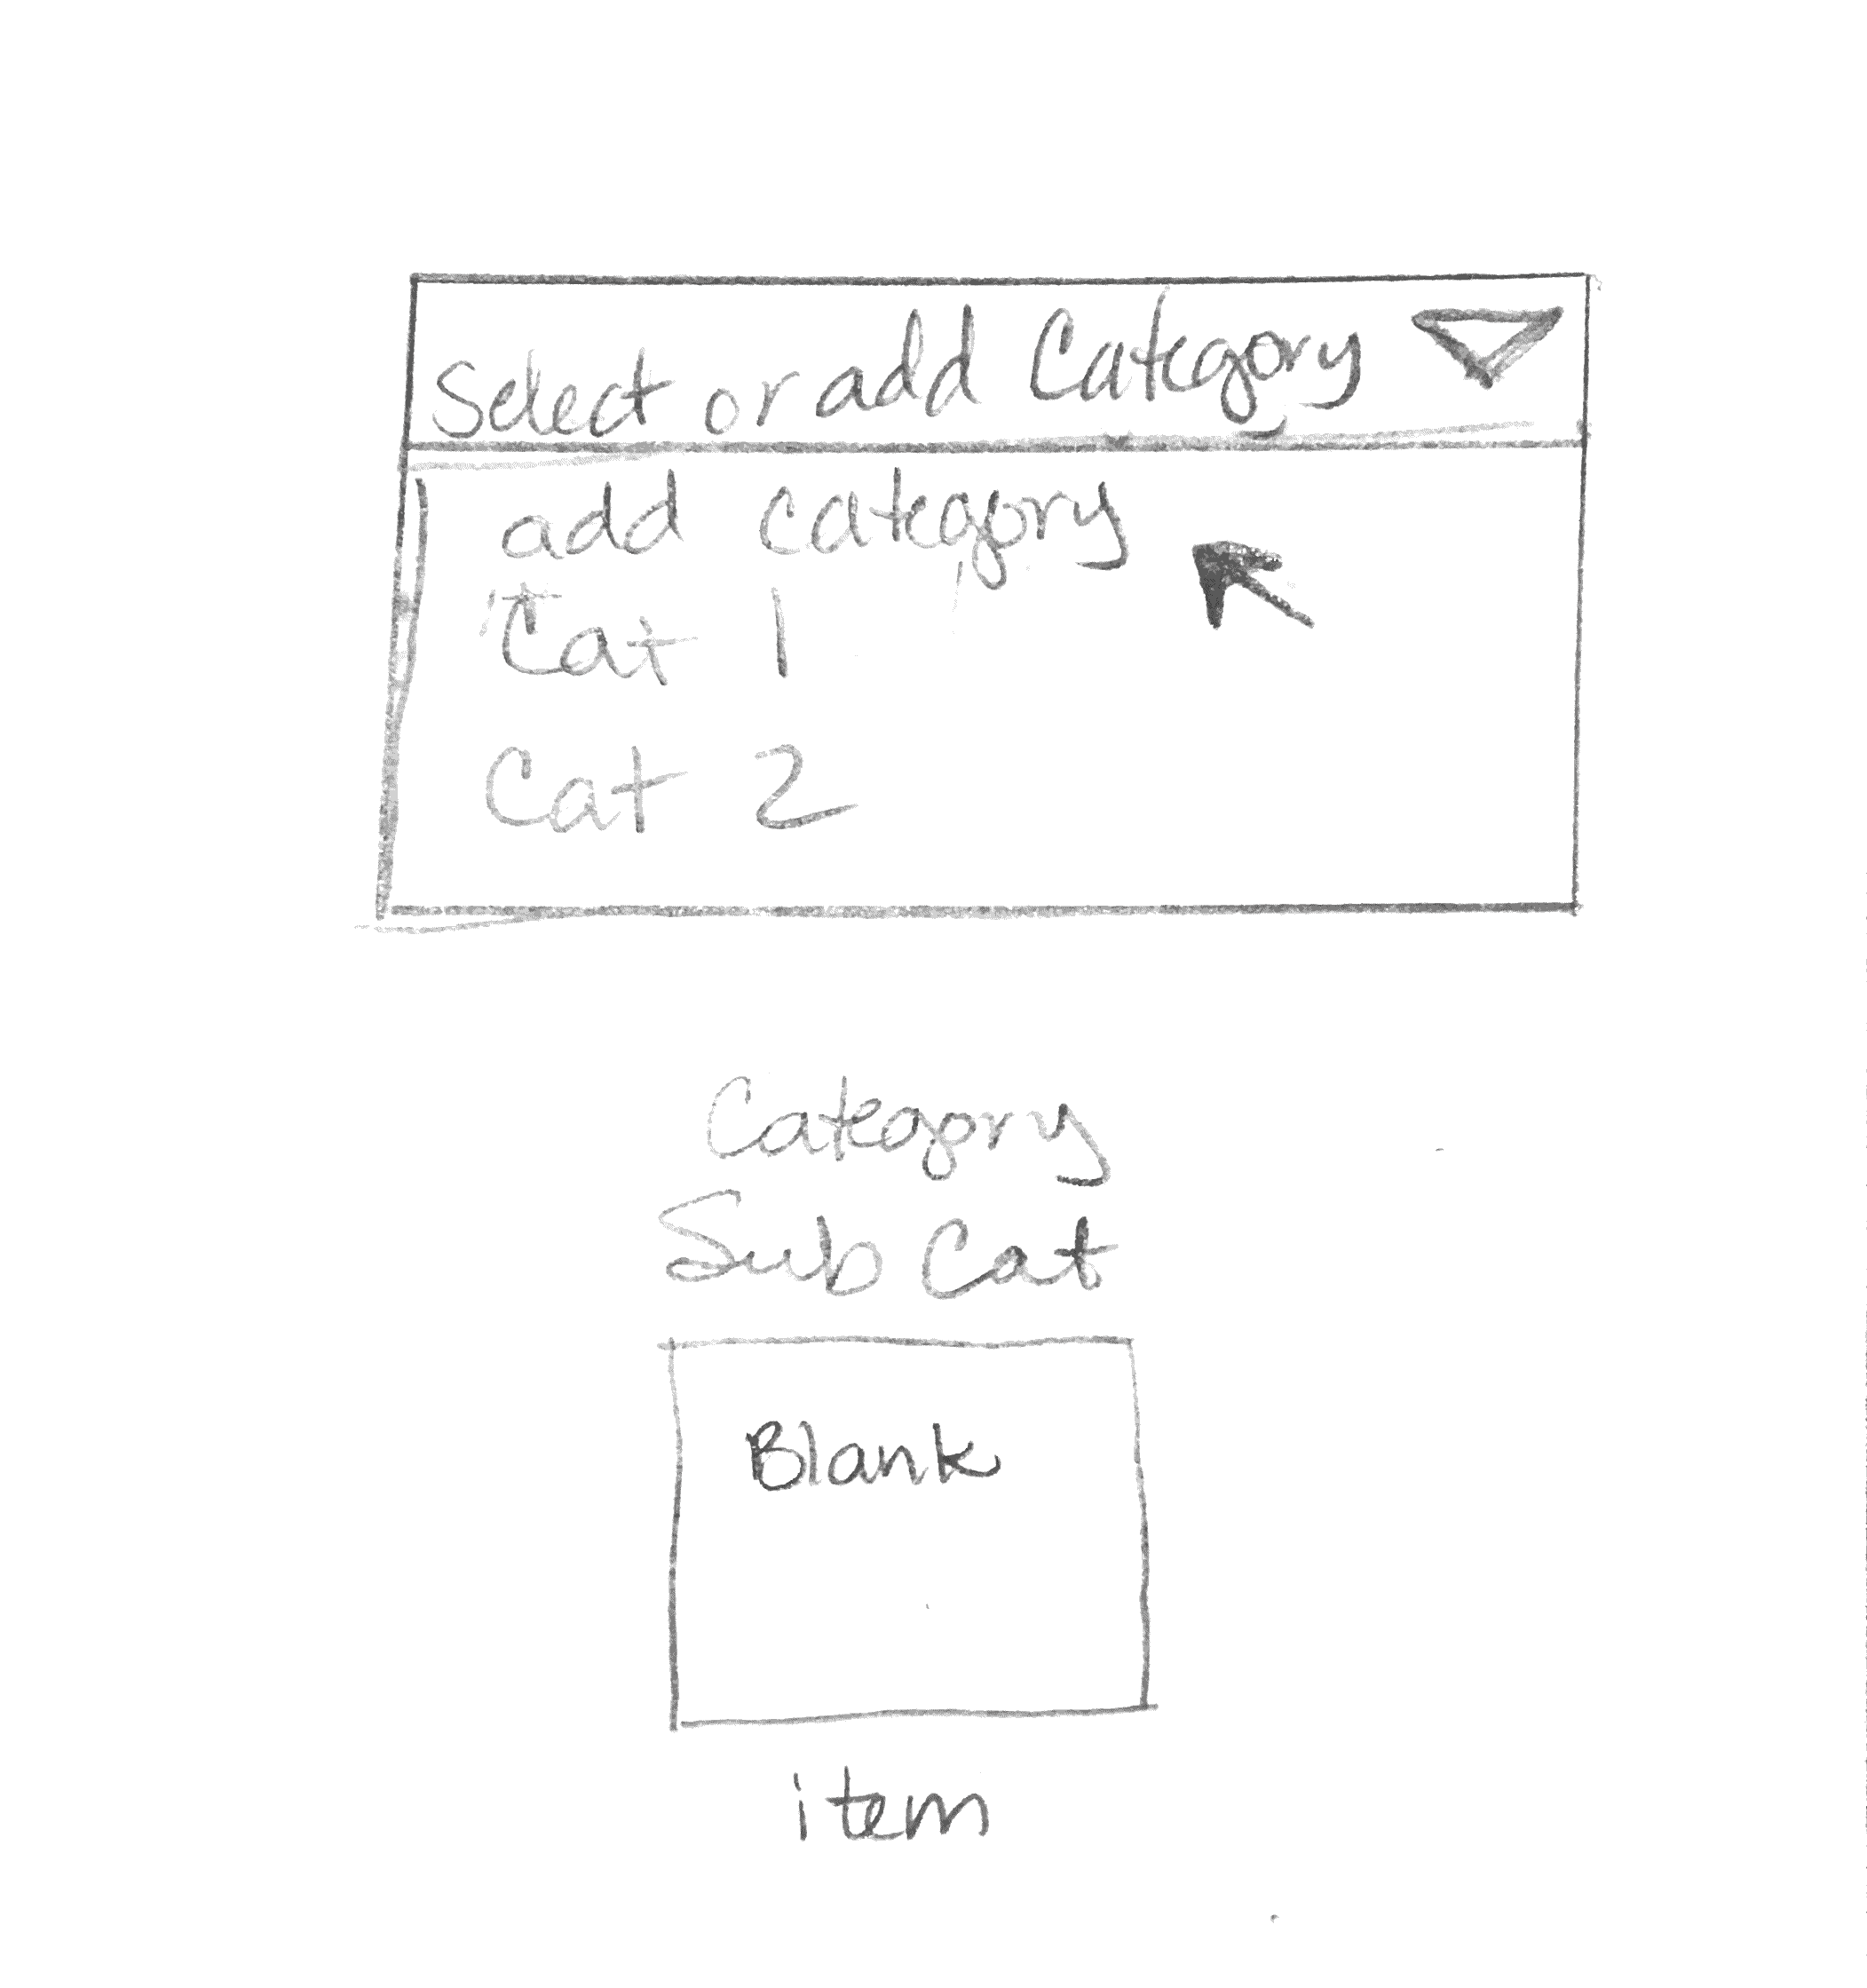 Select or add Category
add category
Cat 1
Cat 2
Category
Sub Cat
Blank
item